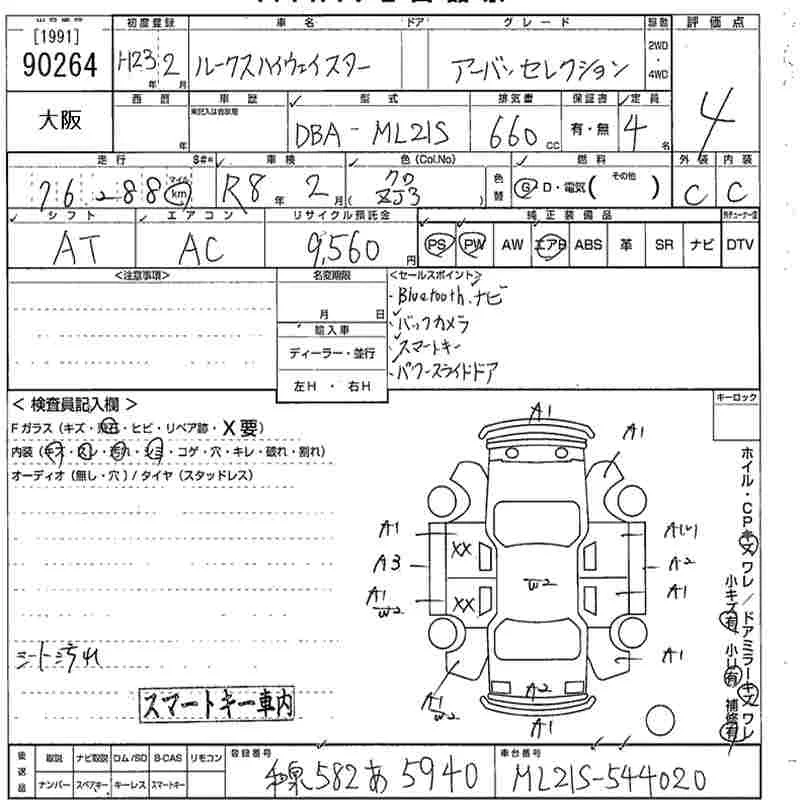 [1991]
90264
大阪
初度登録 車名 ドア グレード 駆動 評価点
H23年 2月 ルークスハイウェイスター アーバンセレクション 2WD・4WD 4
西暦 車歴 型式 排気量 保証書 定員
年 DBA-ML21S 660cc 有・無 4名
走行 車検 色(Col.No) 燃料 外装 内装
76,288 マイル km R8年 2月 クロ ZJ3 色替 G D・電気( その他 ) C C
シフト エアコン リサイクル預託金 純正装備品
AT AC 9,560円 PS PW AW エアB ABS 革 SR ナビ DTV
<注意事項> 名変期限 <セールスポイント>
月 日
輸入車
ディーラー・並行
左H・右H
・Bluetooth.ナビ
・バックカメラ
・スマートキー
・パワースライドドア
<検査員記入欄> キーロック
Fガラス(キズ・飛石・ヒビ・リペア跡・X要)
内装(キズ・スレ・汚れ・シミ・コゲ・穴・キレ・破れ・割れ)
オーディオ(無し・穴)/タイヤ(スタッドレス)
シート汚れ
スマートキー車内
A1
A1
A1 XX
A3
A1 W2 XX
A1 W2
W2
A2
A2
A1
A1
A2
A1
ホイル・CPキズ ワレ/ドアミラーキズ ワレ
小キズ有 小U有 補修有
後送品 取説 ナビ取説 ロム/SD B-CAS リモコン
ナンバー スペアキー キーレス スマートキー
登録番号 和泉582あ5940
車台番号 ML21S-544020